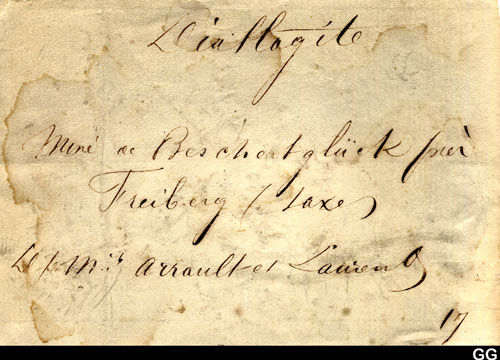 Diallogite
Mine de Bescheertglück près
Freiberg (Saxe)
Arrault et Laurent
17
GG